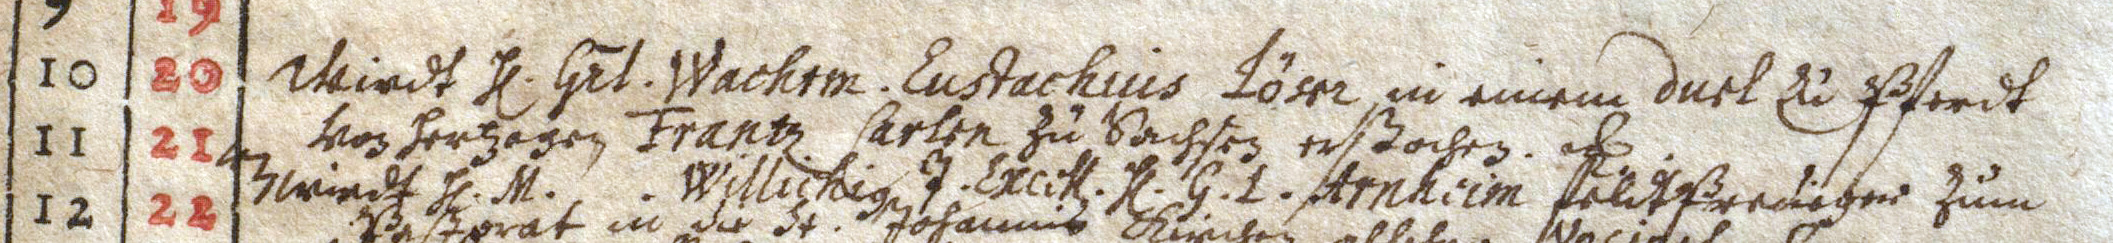 9 19
10 20 Wirdt H. Grl. Wachtm. Eustachius Löser in einem duel zu Pferdt
11 21 von Hertzogen Frantz Carlen zu Sachsen erstochen.
wirdt H. M. . Willichius J. Excell. H. G. L. Arnheim Feldtprediger zum
12 22 Pastorat in die St. Johannis Kirchen